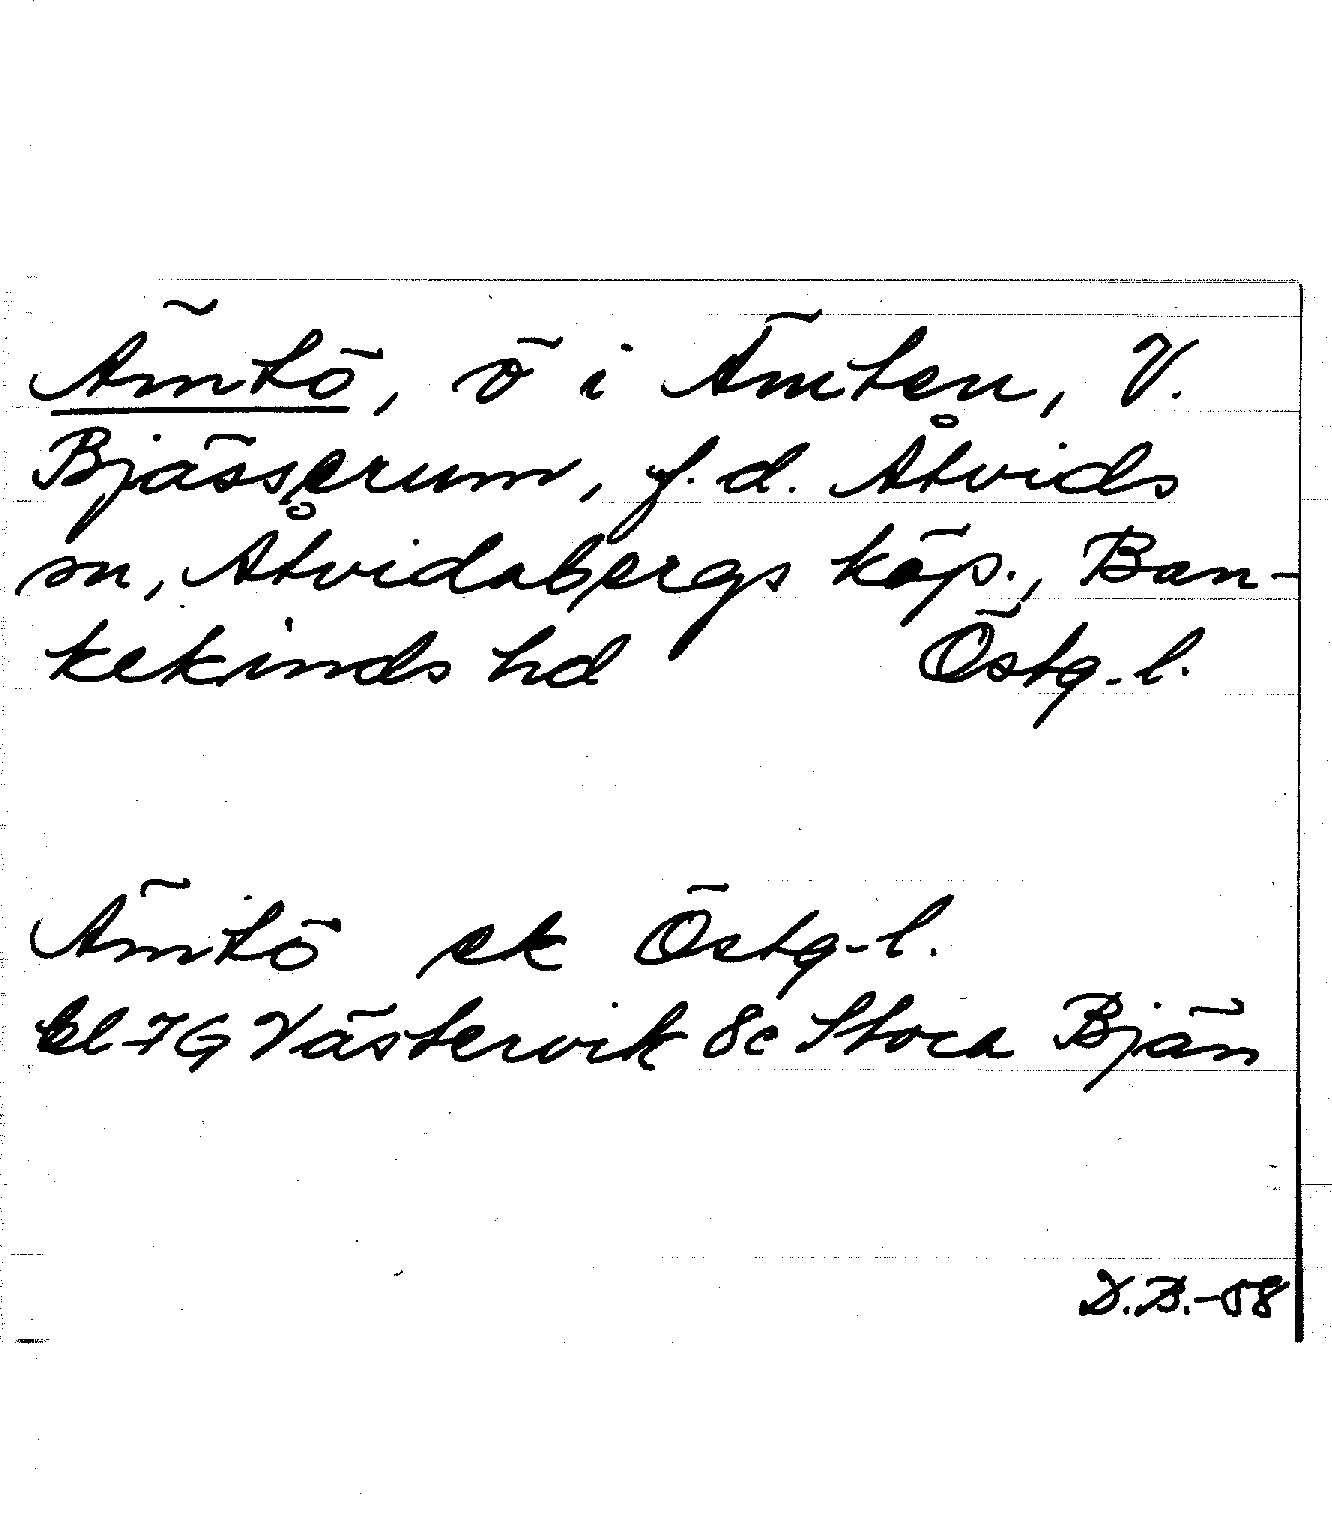 Ämtö, ö i Ämten, V.
Bjässerum, f.d. Åtvids
sn, Åtvidabergs köp., Ban-
kekinds hd Östg.l.
Ämtö ek Östg.l.
bl 7G Västervik 8c Stora Bjän
D.B.-58